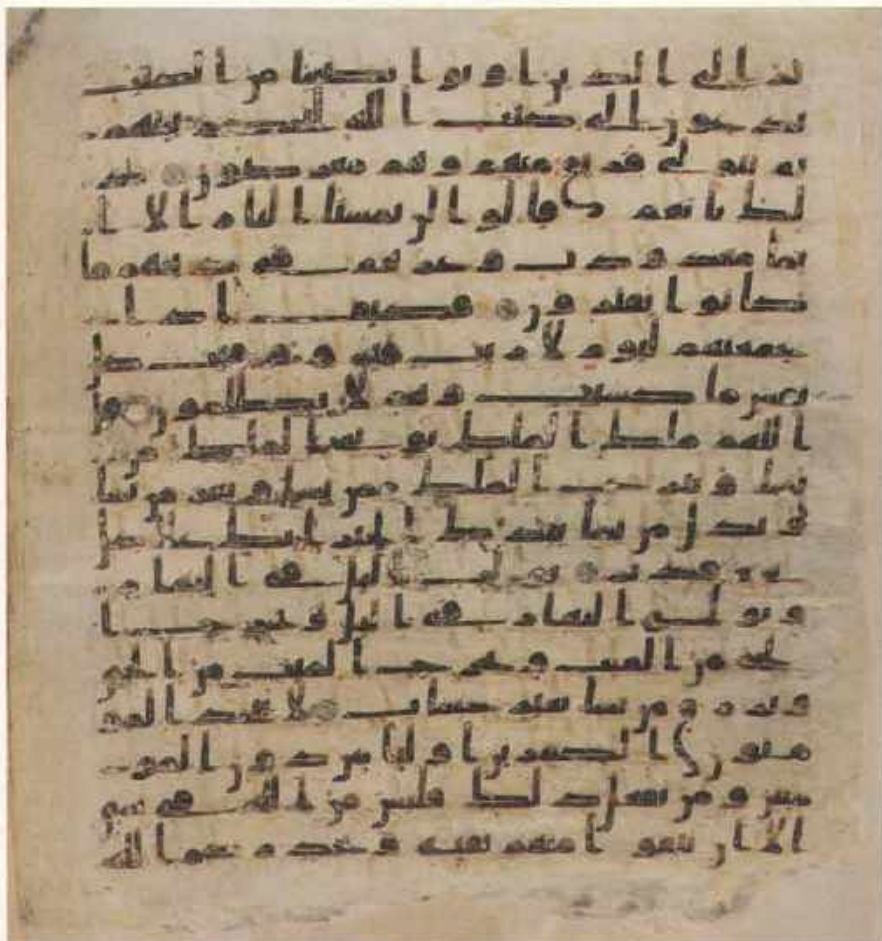 تر الى الذين اوتوا نصيبا من الكتب
يدعون الى كتب الله ليحكم بينهم
ثم يتولى فريق منهم وهم معرضون ذ
لك بانهم قالوا لن تمسنا النار الا ا
ياما معدودت وغرهم في دينهم ما
كانوا يفترون فكيف اذا
جمعنهم ليوم لا ريب فيه ووفيت كل
نفس ما كسبت وهم لا يظلمون قل
اللهم ملك الملك توتي الملك من
تشا وتنزع الملك ممن تشا وتعز من تشا
وتذل من تشا بيدك الخير انك على كل
شي قدير تولج اليل في النهار
وتولج النهار في اليل وتخرج ا
لحي من الميت وتخرج الميت من الحي
وترزق من تشا بغير حساب لا يتخذ المو
منون الكفرين اوليا من دون المو
منين ومن يفعل ذلك فليس من الله في شي
الا ان تتقوا منهم تقية ويحذركم الله